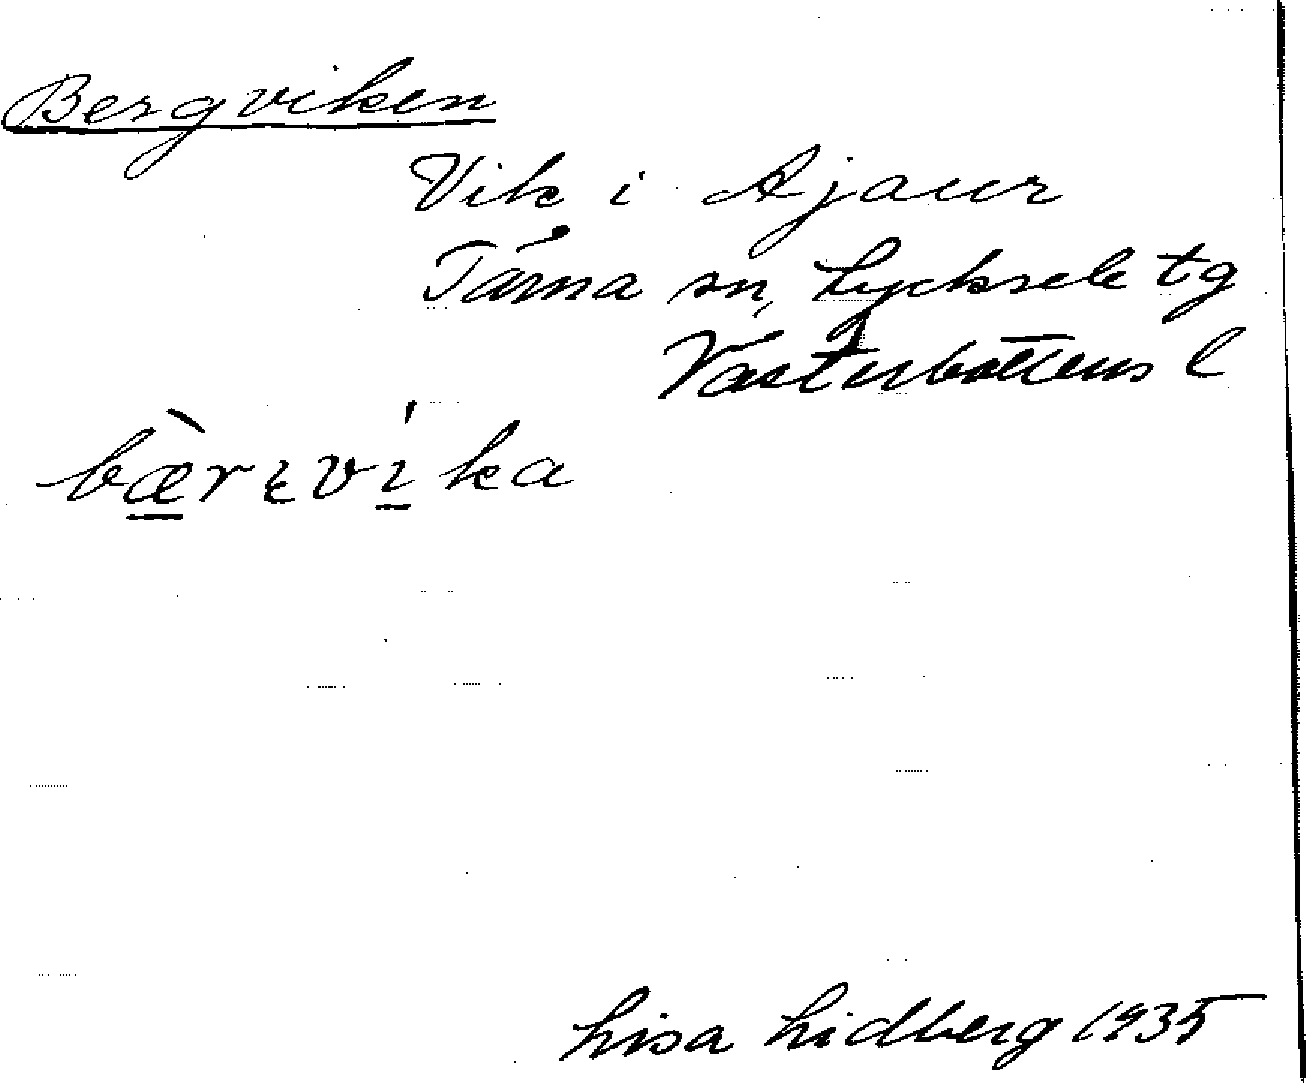 Bergviken
Vik i Ajaur
Tärna sn, Lycksele tg
Västerbottens l
bæ̀rɩvíka
Lisa Lidberg 1935